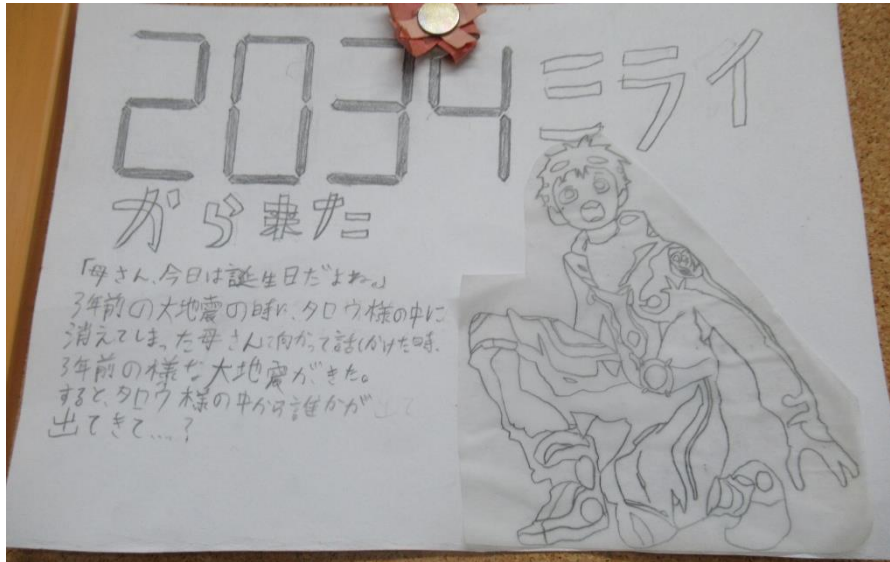 2034 ミライ
から来た
「母さん、今日は誕生日だよね。」
3年前の大地震の時に、タロウ様の中に
消えてしまった母さんに向かって話しかけた時、
3年前の様な大地震がきた。
すると、タロウ様の中から誰かが
出てきて....?